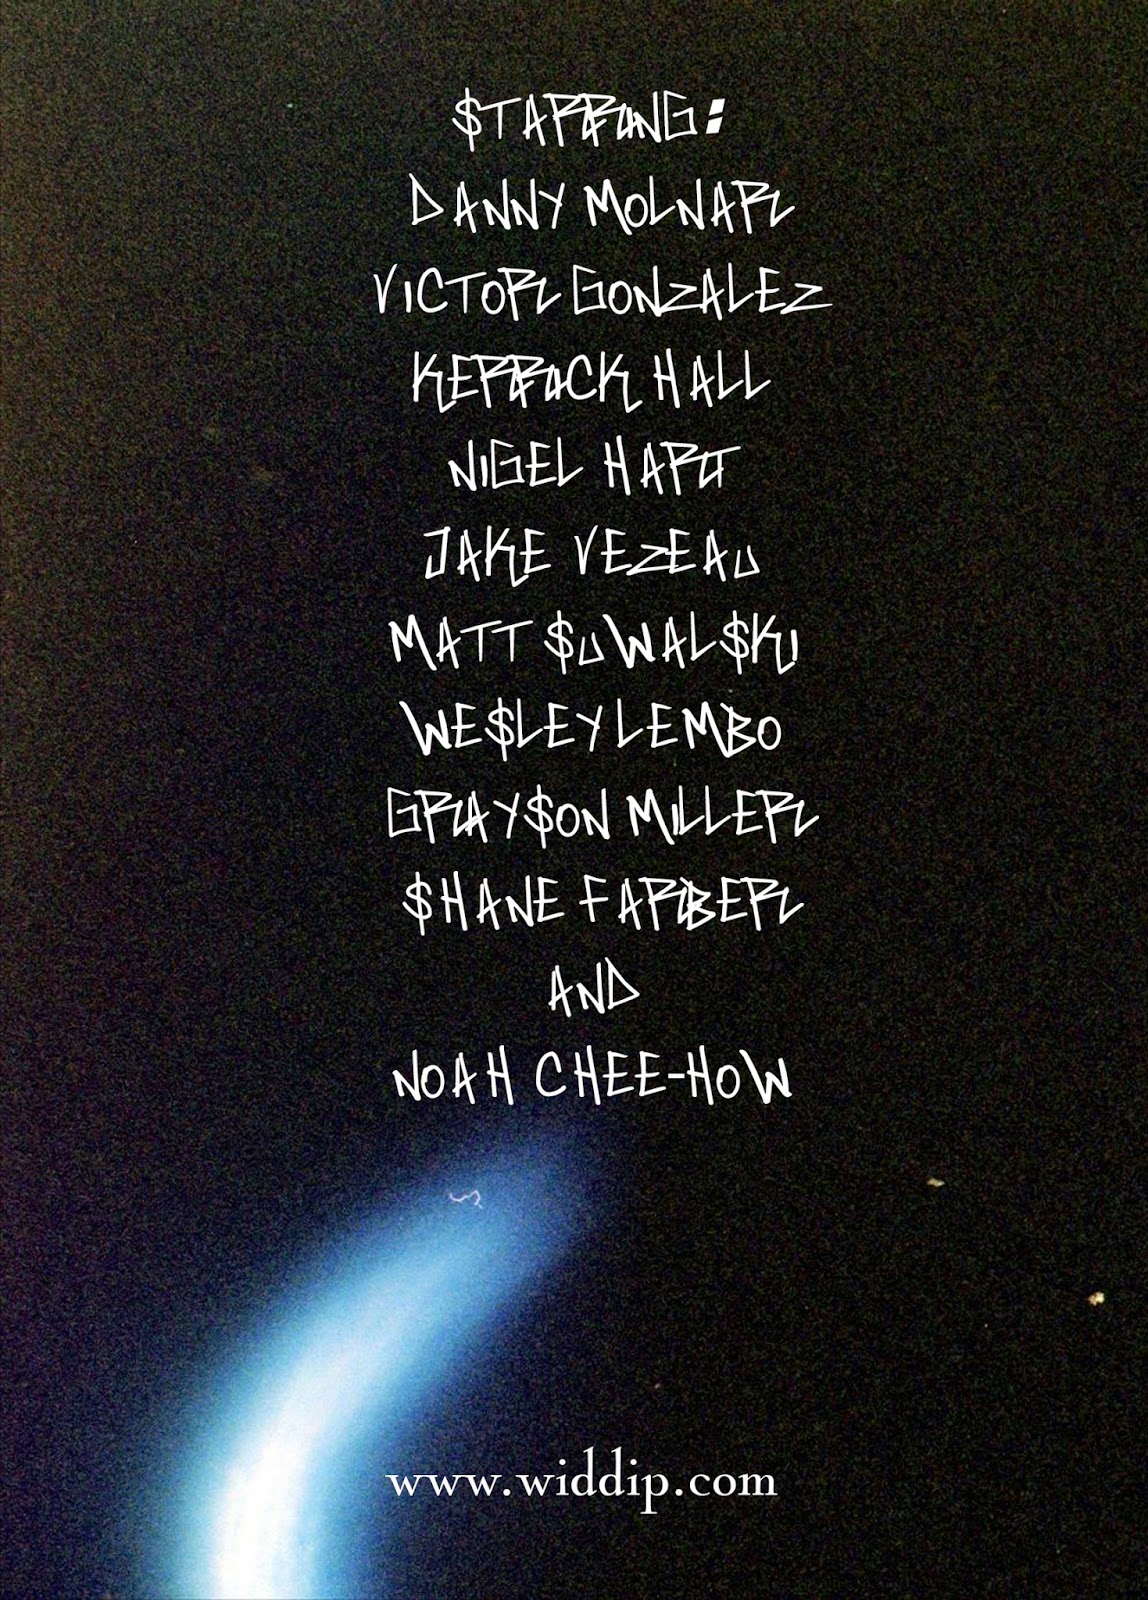 $TARRING:
DANNY MOLNAR
VICTOR GONZALEZ
KERRICK HALL
NIGEL HART
JAKE VEZEAU
MATT $UWAL$KI
WE$LEY LEMBO
GRAY$ON MILLER
$HANE FARBER
AND
NOAH CHEE-HOW
www.widdip.com